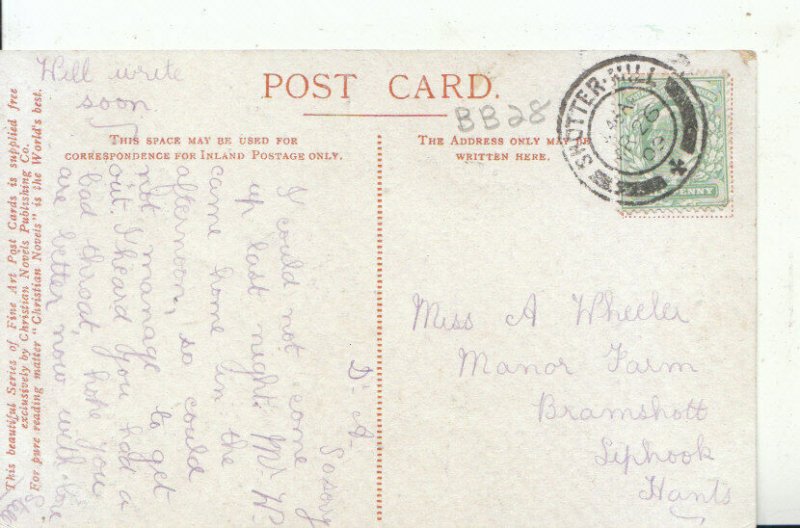 Will write
soon
POST CARD.
BB28
THIS SPACE MAY BE USED FOR
CORRESPONDENCE FOR INLAND POSTAGE ONLY.
THE ADDRESS ONLY MAY BE
WRITTEN HERE.
SHOTTER-MILL
PENNY
D. A.
So sorry
I could not come
up last night. Mr W.
came home in the
afternoon, so could
not manage to get
out. I heard you had a
bad throat, hope you
are better now with love
Miss A Wheeler
Manor Farm
Bramshott
Liphook
Hants
This beautiful Series of Fine Art Post Cards is supplied free
exclusively by Christian Novels Publishing Co.
For pure reading matter "Christian Novels" is the World's best.